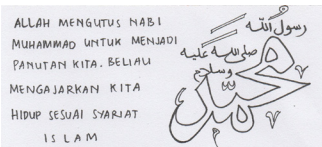 ALLAH MENGUTUS NABI
MUHAMMAD UNTUK MENJADI
PANUTAN KITA. BELIAU
MENGAJARKAN KITA
HIDUP SESUAI SYARIAT
ISLAM
رسول الله
صلى الله عليه
وسلم
محمد